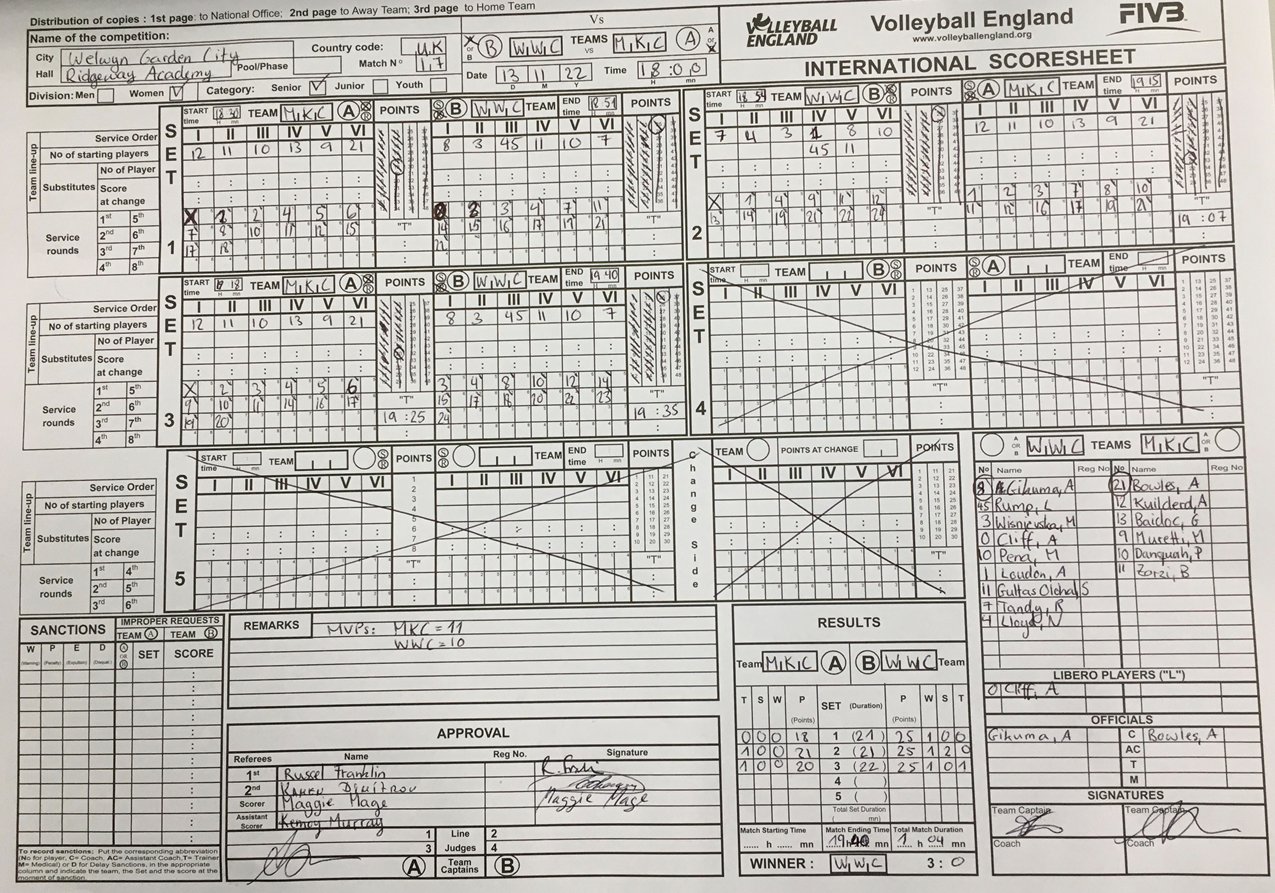 Distribution of copies : 1st page: to National Office; 2nd page to Away Team; 3rd page to Home Team
Name of the competition:
City Welwyn Garden City
Hall Ridgeway Academy
Pool/Phase
Country code: UK
Match Nº 17
Division: Men Women V Category: Senior V Junior Youth
Vs
B WWC TEAMS vs MKC A
Date 13 11 22 Time 18:00
D M Y H mn
VOLLEYBALL ENGLAND
Volleyball England
www.volleyballengland.org
FIVB
INTERNATIONAL SCORESHEET
Team line-up
Service Order
No of starting players
Substitutes
No of Player
Score at change
Service rounds
1st 5th
2nd 6th
3rd 7th
4th 8th
SET 1
START time 18 30 TEAM MKC A POINTS
I II III IV V VI
12 11 10 13 9 21
X 1 2 4 5 6
7 8 10 11 12 15
17 18
"T"
B WWC TEAM END time 18 51 POINTS
I II III IV V VI
8 3 45 11 10 7
3 4 7 11
14 15 16 17 19 21
22
"T"
SET 2
START time 18 54 TEAM WWC B POINTS
I II III IV V VI
7 4 3 1 8 10
45 11
X 1 4 9 11 12
13 14 19 21 22 24
"T"
A MKC TEAM END time 19 15 POINTS
I II III IV V VI
12 11 10 13 9 21
1 2 3 7 8 10
11 12 16 17 19 21
"T"
19 : 07
SET 3
START time 19 18 TEAM MKC A POINTS
I II III IV V VI
12 11 10 13 9 21
X 2 3 4 5 6
9 10 11 14 16 17
19 20
"T"
19 : 25
B WWC TEAM END time 19 40 POINTS
I II III IV V VI
8 3 45 11 10 7
3 4 8 10 12 14
15 17 18 20 22 23
24
"T"
19 : 35
SET 4
START time TEAM B POINTS
I II III IV V VI
"T"
A TEAM END time POINTS
I II III IV V VI
"T"
SET 5
START time TEAM POINTS
I II III IV V VI
"T"
TEAM END time POINTS
I II III IV V VI
"T"
Change Side
TEAM POINTS AT CHANGE POINTS
I II III IV V VI
"T"
1st 4th
2nd 5th
3rd 6th
A OR B WWC TEAMS MKC A OR B
Nº Name Reg No Nº Name Reg No
8 Gikuma, A 21 Bowles, A
45 Rump, L 12 Kuilderd, A
3 Wisniewska, M 13 Baidoc, G
0 Cliff, A 9 Muretti, M
10 Pena, M 10 Danquah, P
1 Loudon, A 11 Zorzi, B
11 Gultas Olchal S
7 Tandy, R
4 Lloyd, N
LIBERO PLAYERS ("L")
0 Cliff, A
OFFICIALS
Gikuma, A C Bowles, A
AC
T
M
SIGNATURES
Team Captain Team Captain
Coach Coach
SANCTIONS
IMPROPER REQUESTS
TEAM A TEAM B
W P E D A OR B SET SCORE
(Warning) (Penalty) (Expulsion) (Disqual.)
To record sanctions: Put the corresponding abbreviation
(No for player, C= Coach, AC= Assistant Coach, T= Trainer
M= Medical) or D for Delay Sanctions, in the appropriate
column and indicate the team, the Set and the score at the
moment of sanction.
REMARKS
MVPs: MKC = 11
WWC = 10
APPROVAL
Referees Name Reg No. Signature
1st Russel Franklin
2nd Kamen Dimitrov
Scorer Maggie Mage Maggie Mage
Assistant Scorer Kemoy Murray
1 Line 2
3 Judges 4
A Team Captains B
RESULTS
Team MKC A B WWC Team
T S W P (Points) SET (Duration) P (Points) W S T
0 0 0 18 1 (21) 25 1 0 0
1 0 0 21 2 (21) 25 1 2 0
1 0 0 20 3 (22) 25 1 0 1
4 ( )
5 ( )
Total Set Duration
( mn)
Match Starting Time Match Ending Time Total Match Duration
h mn 19 h 40 mn 1 h 04 mn
WINNER: WWC 3:0